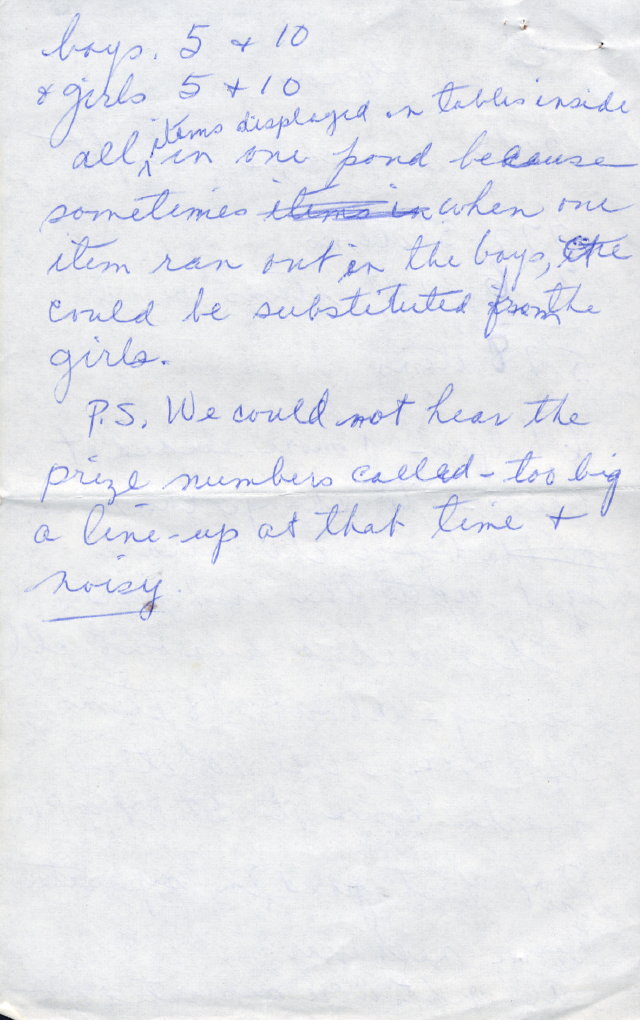 boys. 5 + 10
& girls 5 + 10
all items displayed on tables inside in one pond because
sometimes items in when one
item ran out in the boys, the
could be substituted from the
girls.
P.S. We could not hear the
prize numbers called - too big
a line-up at that time +
noisy